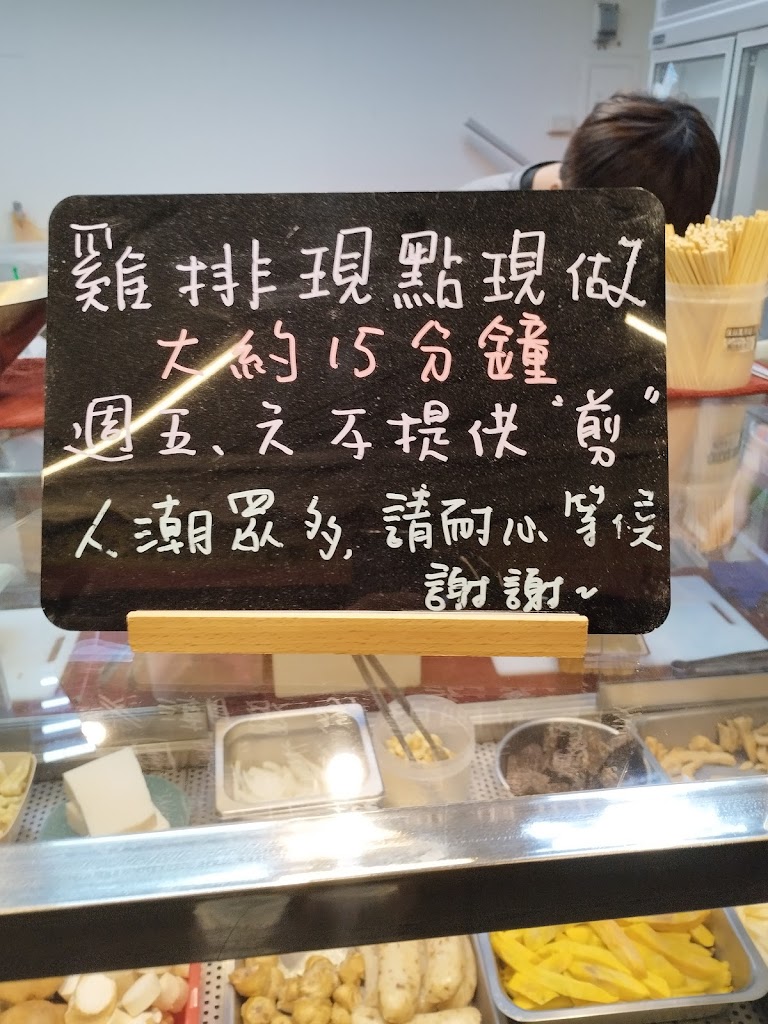 雞排現點現做
大約15分鐘
週五、六不提供"剪"
人潮眾多,請耐心等候
謝謝~